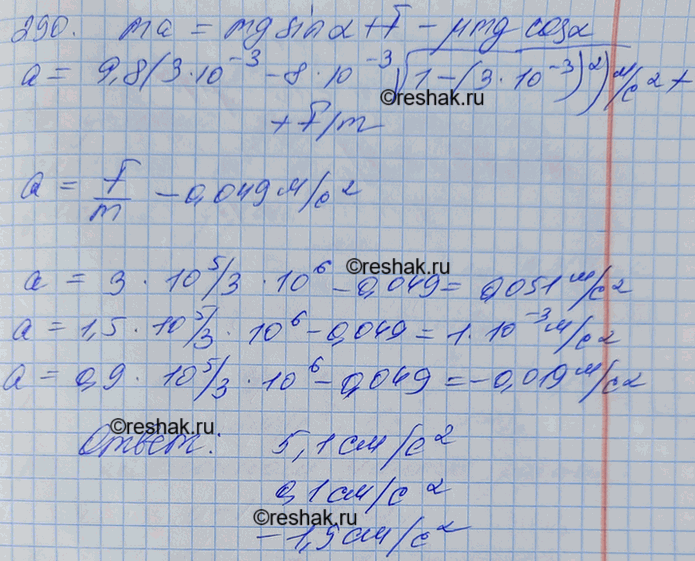 290. ma = mg sin α + F - μmg cos α
a = 9,8(3·10⁻³ - 8·10⁻³√(1-(3·10⁻³)²) м/с² +
reshak.ru
+ F/m
a = F/m - 0,049 м/с²
reshak.ru
a = 3·10⁵/3·10⁶ - 0,049 = 0,051 м/с²
a = 1,5·10⁵/3·10⁶ - 0,049 = 1·10⁻³ м/с²
a = 0,9·10⁵/3·10⁶ - 0,049 = -0,019 м/с²
reshak.ru
Ответ: 5,1 см/с²
0,1 см/с²
reshak.ru
-1,9 см/с²